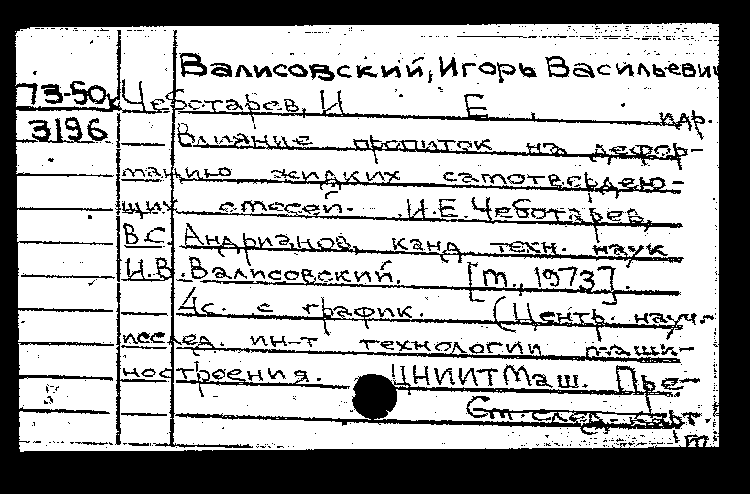 Валисовский, Игорь Васильеви
73-50к Чеботарев, И Е. идр.
3196 Влияние пропиток на дефор-
мацию жидких самотвердею-
щих смесей. И.Е. Чеботарев,
В.С. Андрианов, канд техн. наук
И.В. Валисовский. [М., 1973].
4с. с график. (Центр. науч.-
исслед. ин-т технологии маши-
ностроения. ЦНИИТМаш. Пре-
См. след. карт.